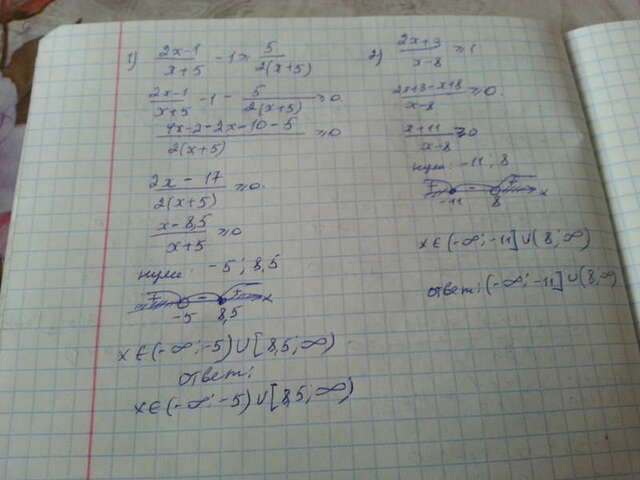 1) (2x-1)/(x+5) - 1 ≥ 5/(2(x+5))
(2x-1)/(x+5) - 1 - 5/(2(x+5)) ≥ 0
(4x-2-2x-10-5)/(2(x+5)) ≥ 0
(2x-17)/(2(x+5)) ≥ 0
(x-8,5)/(x+5) ≥ 0
нули: -5; 8,5
+ - + x
-5 8,5
x ∈ (-∞; -5) ∪ [8,5; ∞)
ответ:
x ∈ (-∞; -5) ∪ [8,5; ∞)
2) (2x+3)/(x-8) ≥ 1
(2x+3-x+8)/(x-8) ≥ 0
(x+11)/(x-8) ≥ 0
нули: -11; 8
+ - + x
-11 8
x ∈ (-∞; -11] ∪ (8; ∞)
ответ: (-∞; -11] ∪ (8; ∞